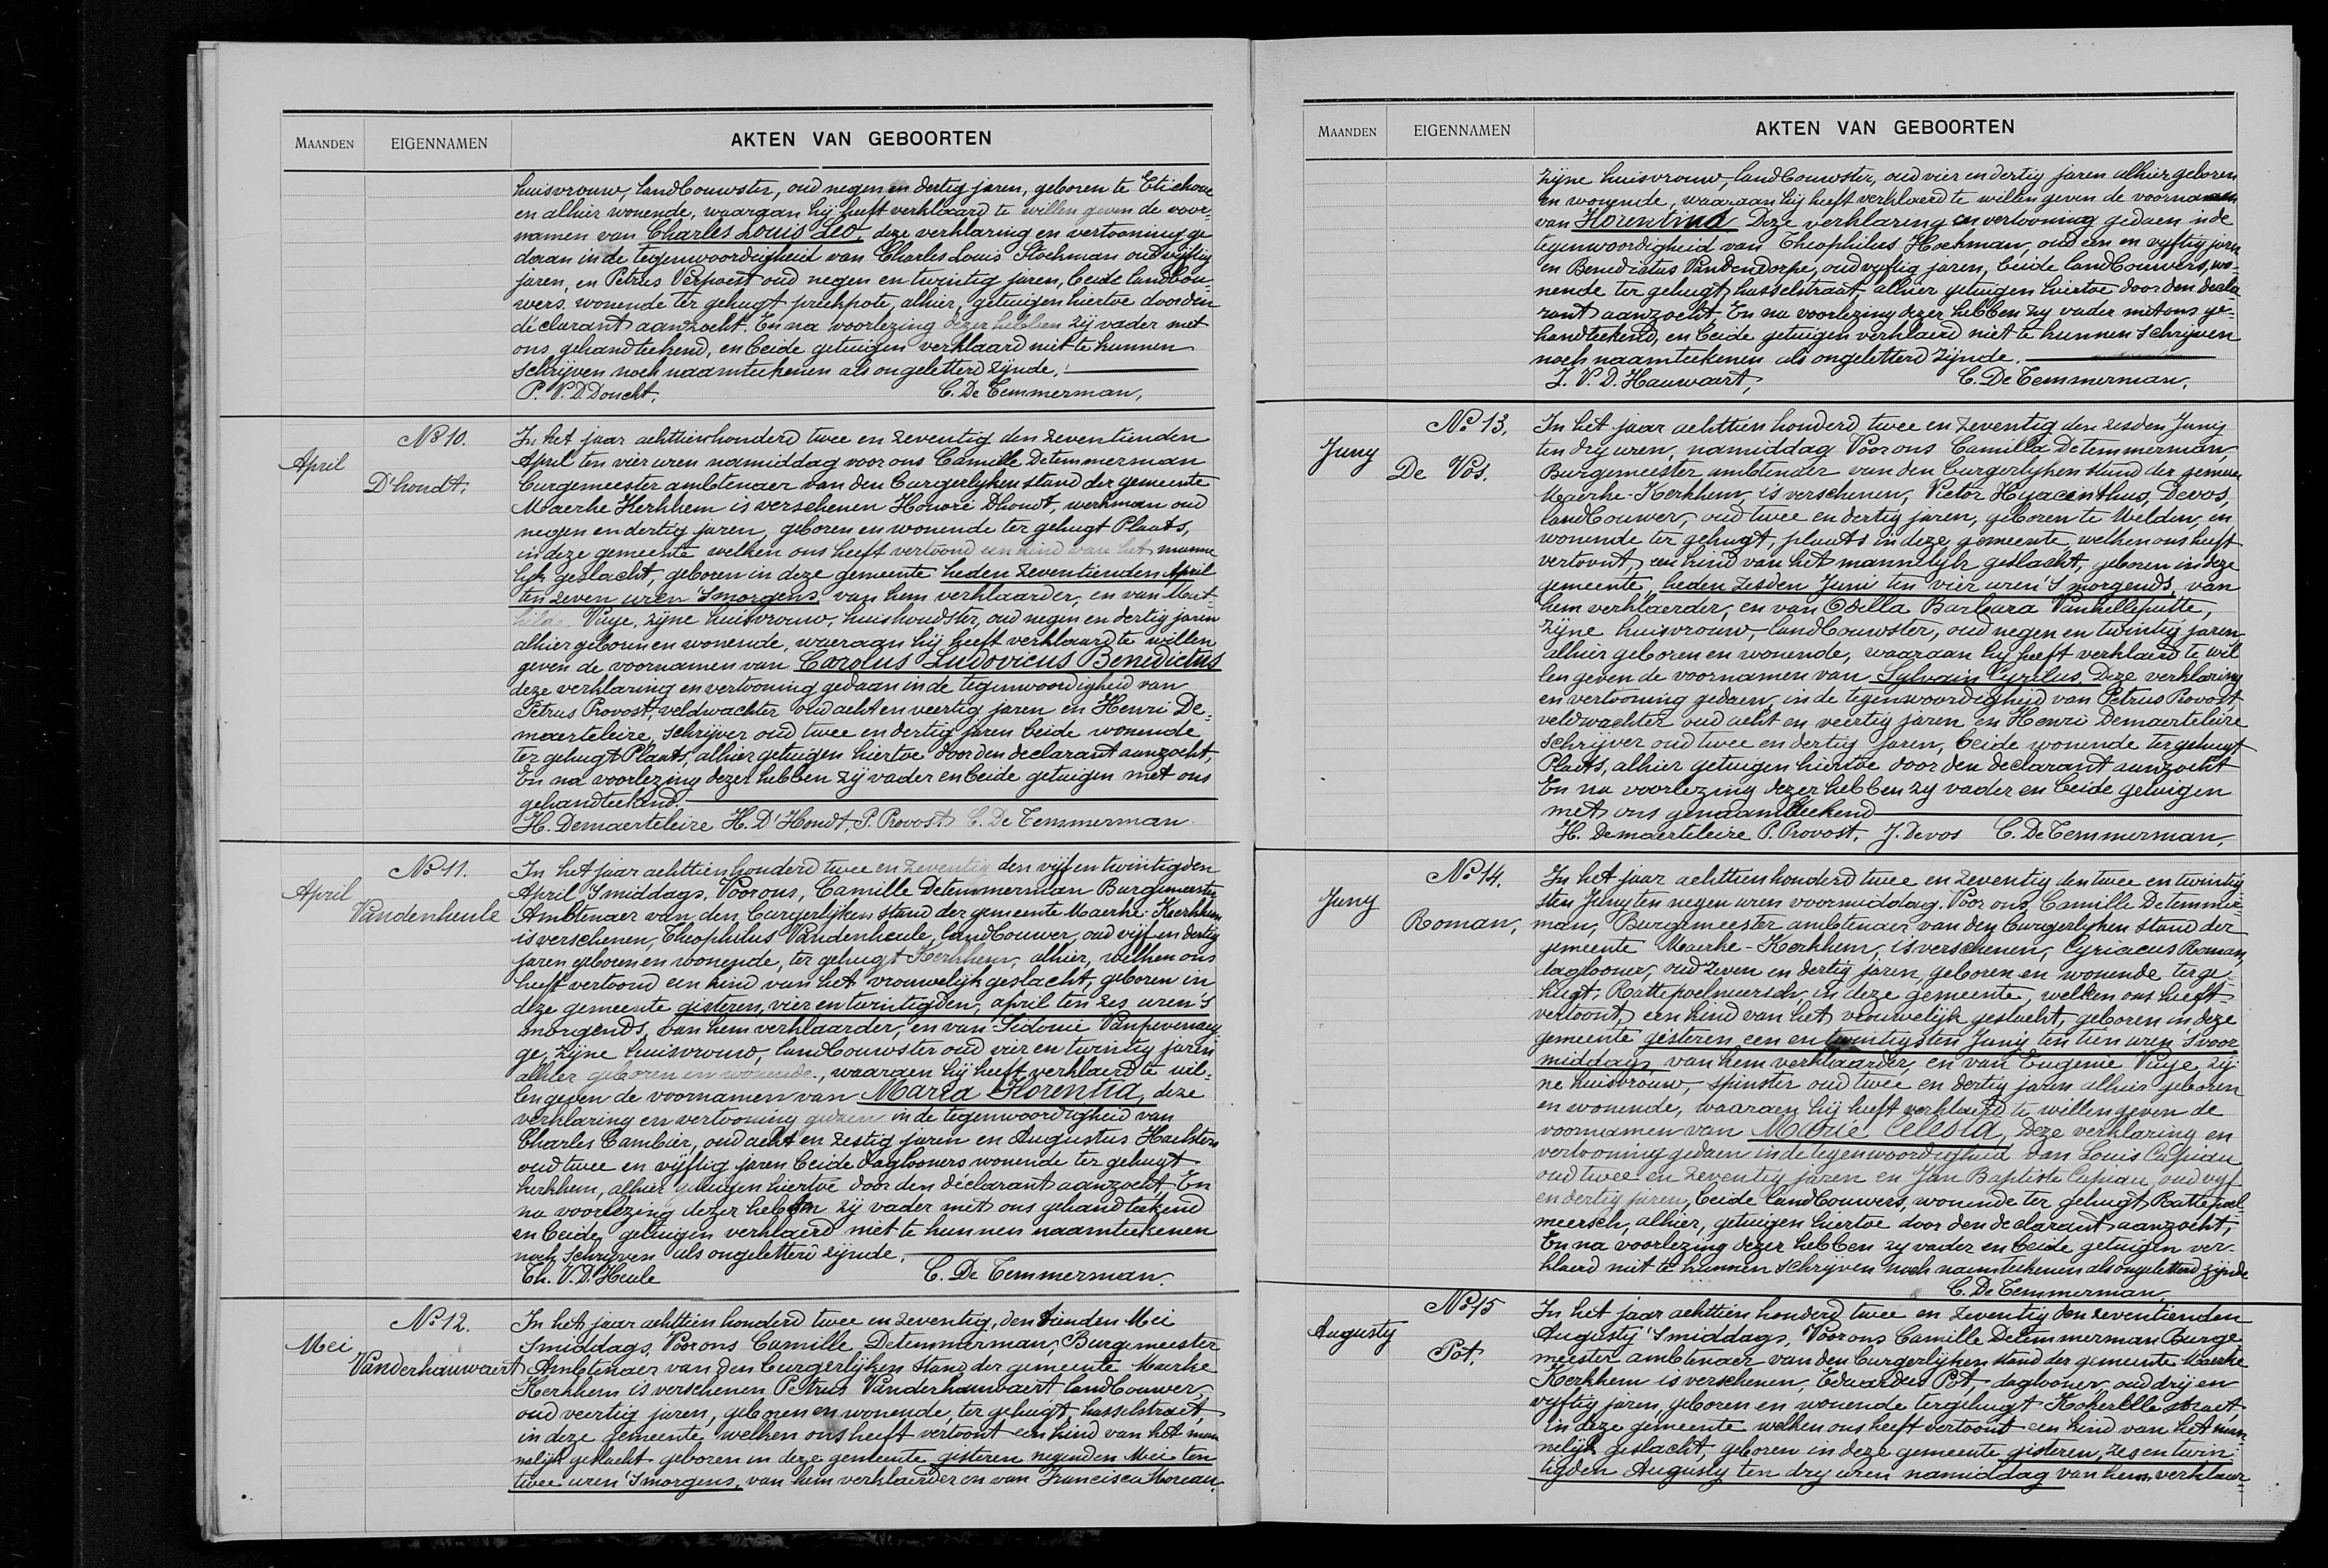 MAANDEN EIGENNAMEN AKTEN VAN GEBOORTEN
huisvrouw, landbouwster, oud negen en dertig jaren, geboren te Etichove
en alhier wonende, waaraan hij heeft verklaard te willen geven de voor-
namen van Charles Louis Leo, deze verklaring en vertooning ge
daan in de tegenwoordigheid van Charles Louis Stockman oud vijftig
jaren, en Petrus Verpoest oud negen en twintig jaren, beide landbou-
wers, wonende ter gehugt prekpote, alhier, getuigen hiertoe door den
declarant aanzocht. En na voorlezing dezer hebben zij vader met
ons gehandteekend, en beide getuigen verklaard niet te kunnen
schrijven noch naamteekenen als ongeletterd zijnde.
P. V. D. Doncht. C. De Temmerman,
April
No 10.
D'hondt.
In het jaar achttienhonderd twee en zeventig den zeventienden
April ten vier uren namiddag voor ons Camille Detemmerman
burgemeester ambtenaer van den burgerlyken stand der gemeente
Maerke Kerkhem is verschenen Honoré Dhondt, werkman oud
negen en dertig jaren, geboren en wonende ter gehugt Plaats,
in deze gemeente welken ons heeft vertoond een kind van het manne
lijk geslacht, geboren in deze gemeente heden zeventienden April
ten zeven uren 'smorgens, van hem verklaarder, en van Mat-
hilde Vuye, zijne huisvrouw, huishoudster, oud negen en dertig jaren
alhier geboren en wonende, waeraan hij heeft verklaard te willen
geven de voornamen van Carolus Ludovicus Benedictus
deze verklaring en vertooning gedaan in de tegenwoordigheid van
Petrus Provost, veldwachter oud acht en veertig jaren en Henri De-
maerteleire, schrijver oud twee en dertig jaren beide wonende
ter gehugt Plaats, alhier getuigen hiertoe door den declarant aanzocht,
En na voorlezing dezer hebben zij vader en beide getuigen met ons
gehandteekend.
H. Demaerteleire H. D'Hondt, P. Provost C. De Temmerman
April
No 11.
Vandenheule
In het jaar achttienhonderd twee en zeventig den vijf en twintigden
April 'Smiddags. Voor ons, Camille Detemmerman Burgemeester
Ambtenaer van den burgerlijken stand der gemeente Maerke-Kerkhem
is verschenen, Theophilus Vandenheule, landbouwer, oud vijf en dertig
jaren geboren en wonende, ter gehugt Kerkhem, alhier, welken ons
heeft vertoond een kind van het vrouwelijk geslacht, geboren in
deze gemeente gisteren, vier en twintigden, april ten zes uren 's
morgends, van hem verklaarder, en van Sidonie Vanpevenaey-
ge, zijne huisvrouw, landbouwster oud vier en twintig jaren
alhier geboren en wonende, waaraen hij heeft verklaerd te wil-
len geven de voornamen van Maria Florentia, deze
verklaring en vertooning gedaen in de tegenwoordigheid van
Charles Cambier, oud acht en zestig jaren en Augustus Haelsters
oud twee en vijftig jaren beide daglooners wonende ter gehugt
kerkhem, alhier getuigen hiertoe door den declarant aanzocht, En
na voorlezing dezer hebben zij vader met ons gehandteekend
en beide getuigen verklaerd niet te kunnen naamteekenen
noch schryven als ongeletterd zijnde.
Th. V. D. Heule C. De Temmerman.
Mei
No 12.
Vanderhauwaert
In het jaar achttien honderd twee en zeventig, den tienden Mei
Smiddags, Voor ons Camille Detemmerman, Burgemeester
Ambtenaer van den burgerlijken stand der gemeente Maerke
Kerkhem is verschenen Petrus Vanderhauwaert landbouwer,
oud veertig jaren, geboren en wonende, ter gehugt, hasselstraet,
in deze gemeente welken ons heeft vertoont een kind van het man
nelijk geslacht geboren in deze gemeente gisteren negenden Mei ten
twee uren 'Smorgens, van hem verklaerder en van Francisca Moreau,
MAANDEN EIGENNAMEN AKTEN VAN GEBOORTEN
zijne huisvrouw, landbouwster, oud vier en dertig jaren alhier geboren
en wonende, waaraan hij heeft verklaerd te willen geven de voornamen
van Florentina Deze verklaring en vertooning gedaen in de
tegenwoordigheid van Theophilus Hoekman, oud een en vyftig jaren
en Benedictus Vandendorpe, oud vyftig jaren, beide landbouwers, wo-
nende ter gehugt, hasselstraat, alhier getuigen hiertoe door den decla
rant aanzocht, En na voorlezing dezer hebben zy vader met ons ge-
handteekend, en beide getuigen verklaerd niet te kunnen schrijven
noch naamteekenen als ongeletterd zijnde.
J. V. D. Hauwaert, C. De Temmerman,
Juny
No 13.
De Vos.
In het jaar achttien honderd twee en zeventig den zesden Juny
ten dry uren, namiddag Voor ons Camilla Detemmerman,
Burgemeester ambtenaer van den burgerlyken stand der gemeente
Maerke-Kerkhem, is verschenen, Victor Hyacinthus, Devos,
landbouwer, oud twee en dertig jaren, geboren te Welden, en
wonende ter gehugt, plaats in deze gemeente welken ons heeft
vertoont, een kind van het mannelijk geslacht, geboren in deze
gemeente, heden zesden Juni ten vier uren 'S morgends, van
hem verklaerder, en van Odilla Barbara Vanhelleputte,
zijne huisvrouw, landbouwster, oud negen en twintig jaren,
alhier geboren en wonende, waaraan hy heeft verklaerd te wil
len geven de voornamen van Sylvain Cyrilus, Deze verklaring
en vertooning gedaen, in de tegenwoordigheid van Petrus Provost
veldwachter oud acht en veertig jaren en Henri Demaerteleire
schrijver oud twee en dertig jaren, beide wonende ter gehugt
Plaats, alhier getuigen hiertoe door den declarant aanzocht
En na voorlezing dezer hebben zy vader en beide getuigen
met ons genaamteekend
H. Demaerteleire P. Provost, J. Devos C. De Temmerman,
Juny
No 14.
Roman,
In het jaar achttien honderd twee en zeventig den twee en twintig
sten Juny ten negen uren voormiddag. Voor ons, Camille Detemmer-
man, Burgemeester ambtenaer van den burgerlyken stand der
gemeente Maerke-Kerkhem, is verschenen, Cyriacus Roman,
daglooner, oud zeven en dertig jaren, geboren en wonende ter ge-
hugt, Rattepoelmeersch, in deze gemeente, welken ons heeft
vertoont, een kind van het vrouwelijk geslacht, geboren in deze
gemeente gisteren een en twintigsten Juny ten tien uren 'S voor
middags, van hem verklaarder, en van Eugenie Vuye, zij
ne huisvrouw, spinster oud twee en dertig jaren alhier geboren
en wonende, waaraen hij heeft verklaerd te willen geven de
voornamen van Marie Celesta, Deze verklaring en
vertooning gedaen in de tegenwoordigheid van Louis Capiau
oud twee en zeventig jaren en Jan Baptiste Capiau, oud vyf
en dertig jaren, beide landbouwers, wonende ter gehugt Rattepoel
meersch, alhier, getuigen hiertoe door den declarant aanzocht,
En na voorlezing dezer hebben zy vader en beide getuigen ver-
klaerd niet te kunnen schrijven noch naamteekenen als ongeletterd zijnde
C. De Temmerman
Augusty
No 15
Pot.
In het jaar achttien honderd twee en zeventig den zeventienden
Augusty 'Smiddags, Voor ons Camille Detemmerman Burge
meester ambtenaer van den burgerlijken stand der gemeente Maerke
Kerkhem is verschenen, Eduardus Pot, daglooner, oud drij en
vyftig jaren, geboren en wonende ter gehugt Kokerelle straet,
in deze gemeente welken ons heeft vertoont een kind van het man-
nelijk geslacht, geboren in deze gemeente gisteren, zes en twin
tigden Augusty ten dry uren namiddag van hem verklaar-